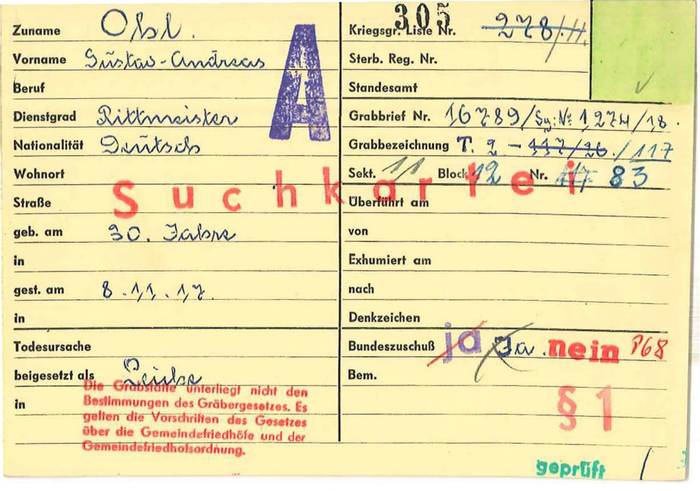 Zuname Ohl.
Vorname Gustav-Andreas
Beruf
Dienstgrad Rittmeister
Nationalität Deutsch
Wohnort
Straße
geb. am 30. Jahre
in
gest. am 8.11.17.
in
Todesursache
beigesetzt als Leiche
in
Die Grabstätte unterliegt nicht den
Bestimmungen des Gräbergesetzes. Es
gelten die Vorschriften des Gesetzes
über die Gemeindefriedhöfe und der
Gemeindefriedhofsordnung.
A
Suchkartei
305
Kriegsgr. Liste Nr. 278/II.
Sterb. Reg. Nr.
Standesamt
Grabbrief Nr. 16789/Sg: № 1274/18.
Grabbezeichnung T. 2 - 117/26 /117
Sekt. 11 Block 12 Nr. 83
Überführt am
von
Exhumiert am
nach
Denkzeichen
Bundeszuschuß ja Ja. nein P68
Bem.
§ 1
geprüft